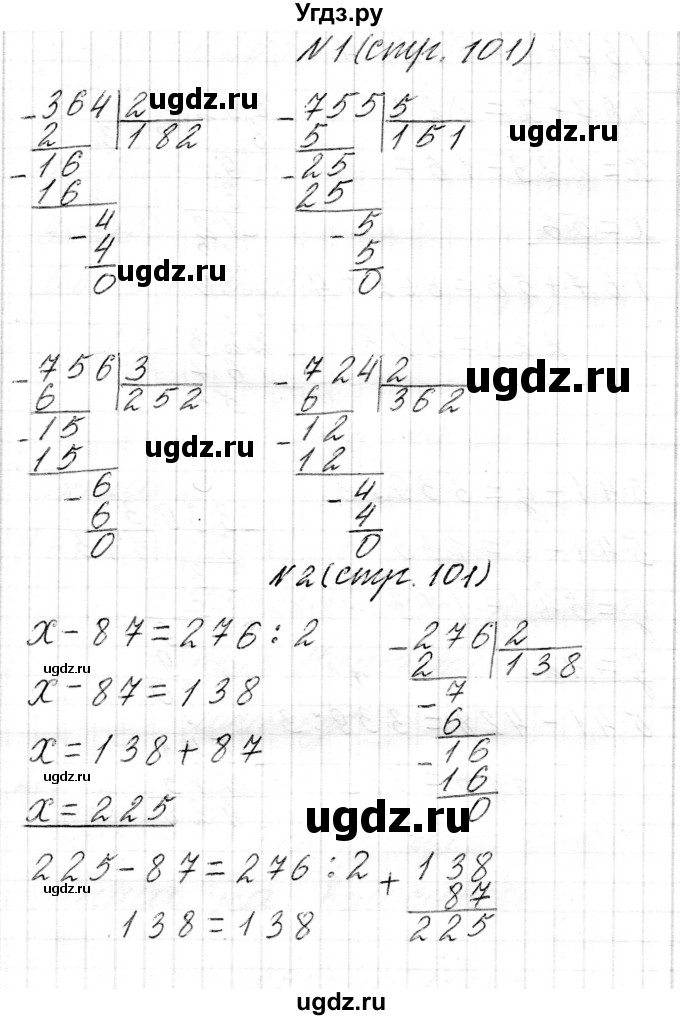 Угдз.ру
N1 (стр. 101)
-364 2 ugdz.ru -755 5
2 182 5 151 ugdz.ru
-16 -25
16 25
-4 -5
4 5
0 0
ugdz.ru
-756 3 -724 2
6 252 6 362 ugdz.ru
-15 -12
15 ugdz.ru 12
-6 -4
6 4
0 0
N2 (стр. 101)
x-87=276:2 -276 2
ugdz.ru 2 138
x-87=138 -7
6
x=138+87 -16
ugdz.ru 16
x=225 0
ugdz.ru
225-87=276:2 +138
87
138=138 225
ugdz.ru